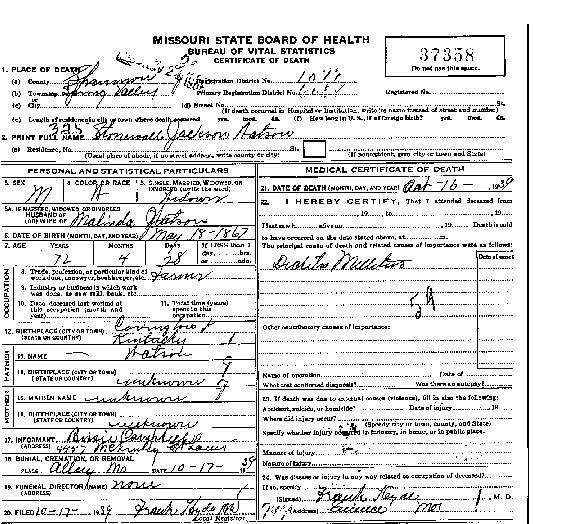 MISSOURI STATE BOARD OF HEALTH
BUREAU OF VITAL STATISTICS
CERTIFICATE OF DEATH
37358
Do not use this space.
1. PLACE OF DEATH
(a) County Shannon Registration District No. 
(b) Township Spring Valley Primary Registration District No. Registered No.
or
(c) City (d) Street No. St.
(If death occurred in Hospital or Institution, write its name instead of street and number)
(e) Length of residence in city or town where death occurred yrs. mos. ds. (f) How long in U. S., if of foreign birth? yrs. mos. ds.
2. PRINT FULL NAME 325 Stonewall Jackson Watson
(a) Residence, No. St.
(Usual place of abode, if no street address, write county or city) (If nonresident, give city or town and State)
PERSONAL AND STATISTICAL PARTICULARS
3. SEX 4. COLOR OR RACE 5. SINGLE, MARRIED, WIDOWED, OR DIVORCED (write the word)
M Widower
5A. IF MARRIED, WIDOWED OR DIVORCED
HUSBAND OF
(OR) WIFE OF Malinda Watson
6. DATE OF BIRTH (MONTH, DAY, AND YEAR) May 18-1867
7. AGE YEARS MONTHS DAYS If LESS than 1 day, hrs. or min.
72 4 28
OCCUPATION
8. Trade, profession, or particular kind of work done, sawyer, bookkeeper, etc. Farmer
9. Industry or business in which work was done, as saw mill, bank, etc.
10. Date deceased last worked at this occupation (month and year) 11. Total time (years) spent in this occupation
12. BIRTHPLACE (CITY OR TOWN) Covington
(STATE OR COUNTRY) Kentucky 1
FATHER
13. NAME Watson
14. BIRTHPLACE (CITY OR TOWN)
(STATE OR COUNTRY) unknown 9
MOTHER
15. MAIDEN NAME unknown
16. BIRTHPLACE (CITY OR TOWN)
(STATE OR COUNTRY) unknown
17. INFORMANT
(ADDRESS)
18. BURIAL, CREMATION, OR REMOVAL
PLACE Alley, Mo DATE 10-17- 39
19. FUNERAL DIRECTOR (NAME) none
(ADDRESS)
20. FILED 10-17- 1939 Frank Hyde MD
Local Registrar
MEDICAL CERTIFICATE OF DEATH
21. DATE OF DEATH (MONTH, DAY, AND YEAR) Oct-16- 1939
22. I HEREBY CERTIFY, That I attended deceased from
, 19 , to , 19
I last saw h alive on , 19 Death is said
to have occurred on the date stated above, at m.
The principal cause of death and related causes of importance were as follows:
Date of onset
Diabetes Mellitus
59
Other contributory causes of importance:
Name of operation Date of
What test confirmed diagnosis? Was there an autopsy?
23. If death was due to external causes (violence), fill in also the following:
Accident, suicide, or homicide? Date of injury , 19
Where did injury occur?
(Specify city or town, county, and State)
Specify whether injury occurred in industry, in home, or in public place.
Manner of injury
Nature of injury
24. Was disease or injury in any way related to occupation of deceased?
If so, specify
(Signed) Frank Hyde, M. D.
(Address) Eminence Mo